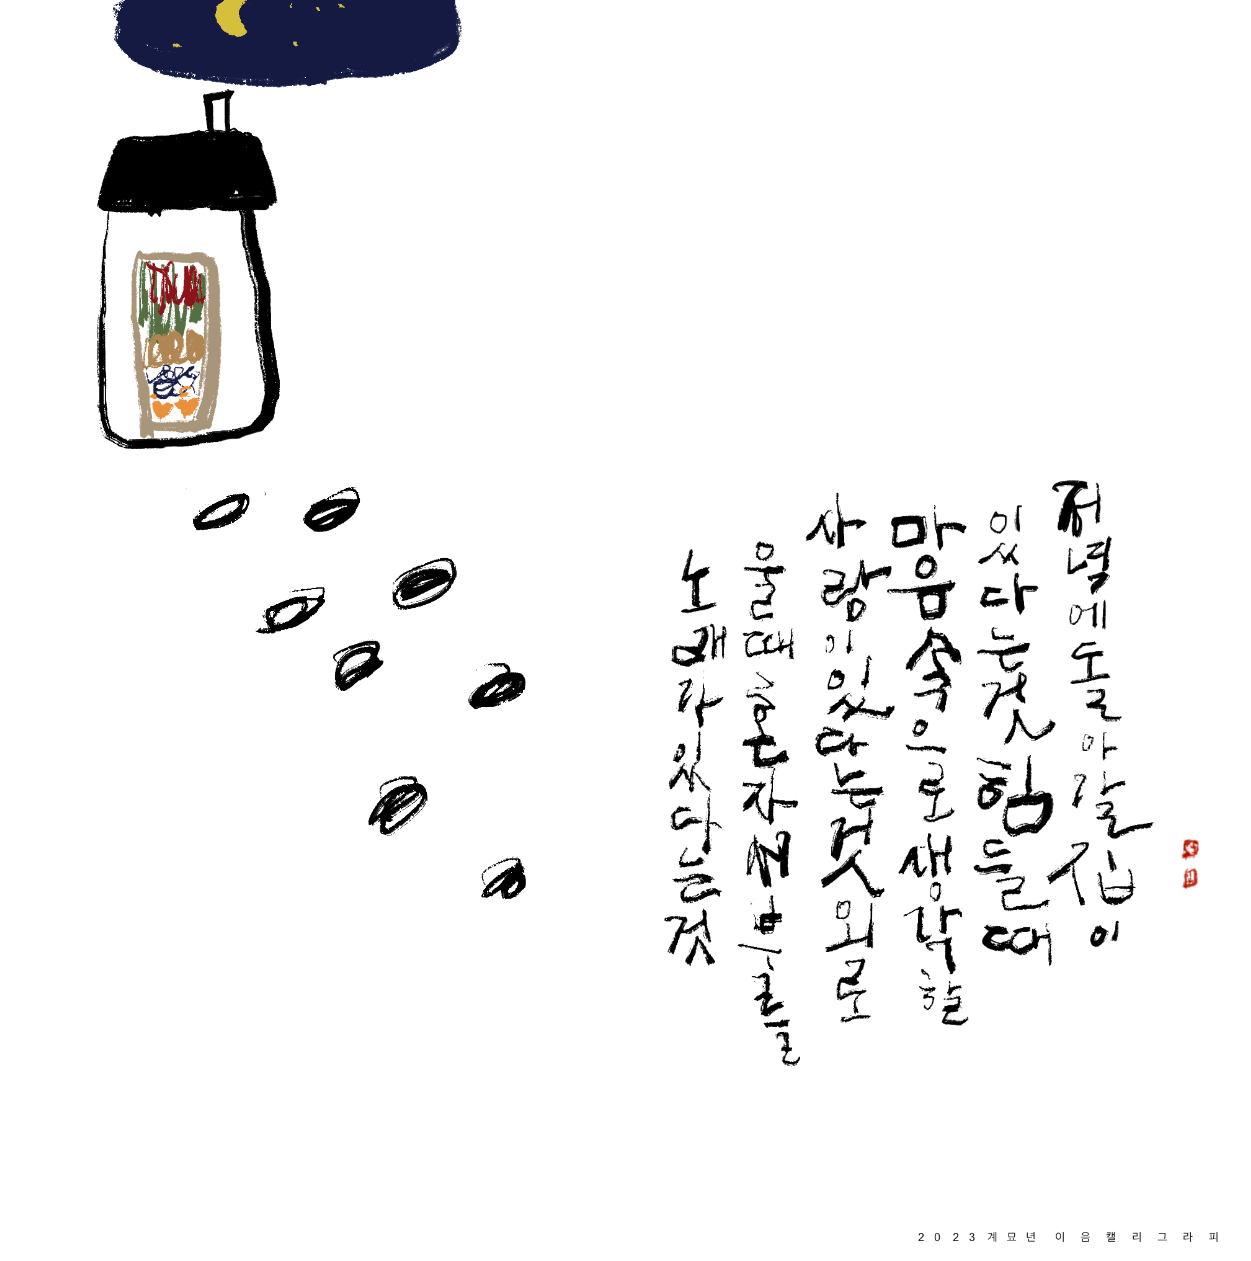 저녁에돌아갈집이
있다는것힘들때
마음속으로생각할
사랑이있다는것외로
울때혼자서부를
노래가있다는것
2023계묘년 이음캘리그라피